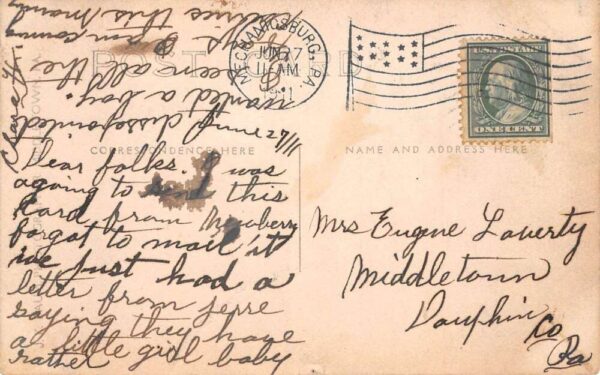 POST CARD
MECHANICSBURG, PA.
JUN 27
11 AM
1911
U.S. POSTAGE
ONE CENT
CORRESPONDENCE HERE
NAME AND ADDRESS HERE
June 27/11
Dear folks. I was
agoing to send this
Card from Newberry
forgot to mail it
ive just had a
letter from Jesse
saying they have
a little girl baby
rather
disappointed
wanted a boy.
seen all the
this
coming
Clara
Mrs Eugene Laverty
Middletown
Dauphin Co
Pa